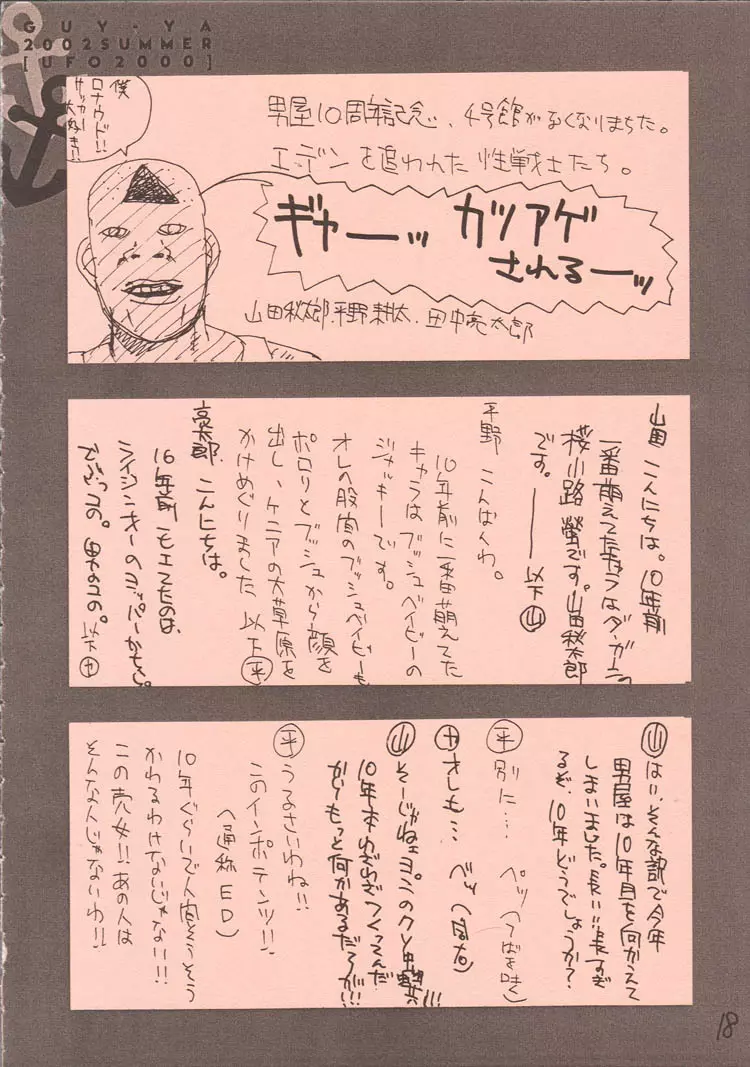 GUY-YA
2002SUMMER
[UFO2000]
僕
ロナウド!!
サッカー
大好き!!
男屋10周年記念、4号館がなくなりまちた。
エデンを追われた性戦士たち。
ギャーーッ カツアゲ
されるーーッ
山田秋太郎.平野耕太.田中亮太郎
山田 こんにちは。10年前
一番萌えてたキャラはダ・ガーンの
桜小路螢です。山田秋太郎
です。――以下山
平野 こんばくわ。
10年前に一番萌えてた
キャラはブッシュベイビーの
ジャッキーです。
オレの股間のブッシュベイビーも
ポロリとブッシュから顔を
出し、ケニアの大草原を
かけめぐりました 以下平
亮太郎 こんにちは。
10年前モエてたのは、
ライジンオーのヨッパーかちら。
でぶっつの。男のコの。以下十
山 はい、そんな訳で今年
男屋は10年目を向かえて
しまいました。長い!!長すぎ
るぞ、10年どうでしょうか?
平 別に… ペッ(つばを吐く)
十 オレも… ペッ
山 そーじゃねェ
10年本わざわざつくってんだ
かりもっと何かあるだろが!!!
平 うるさいわね!!
このインポテンツ!!
(通称ED)
10年ぐらいで人間そうそう
かわるわけないじゃない!!!
この売女!!あの人は
そんな人じゃないわ!!
18